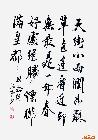 天街小雨潤如酥
草色遙看近却無
最是一年春
好處絕勝煙柳
滿皇都